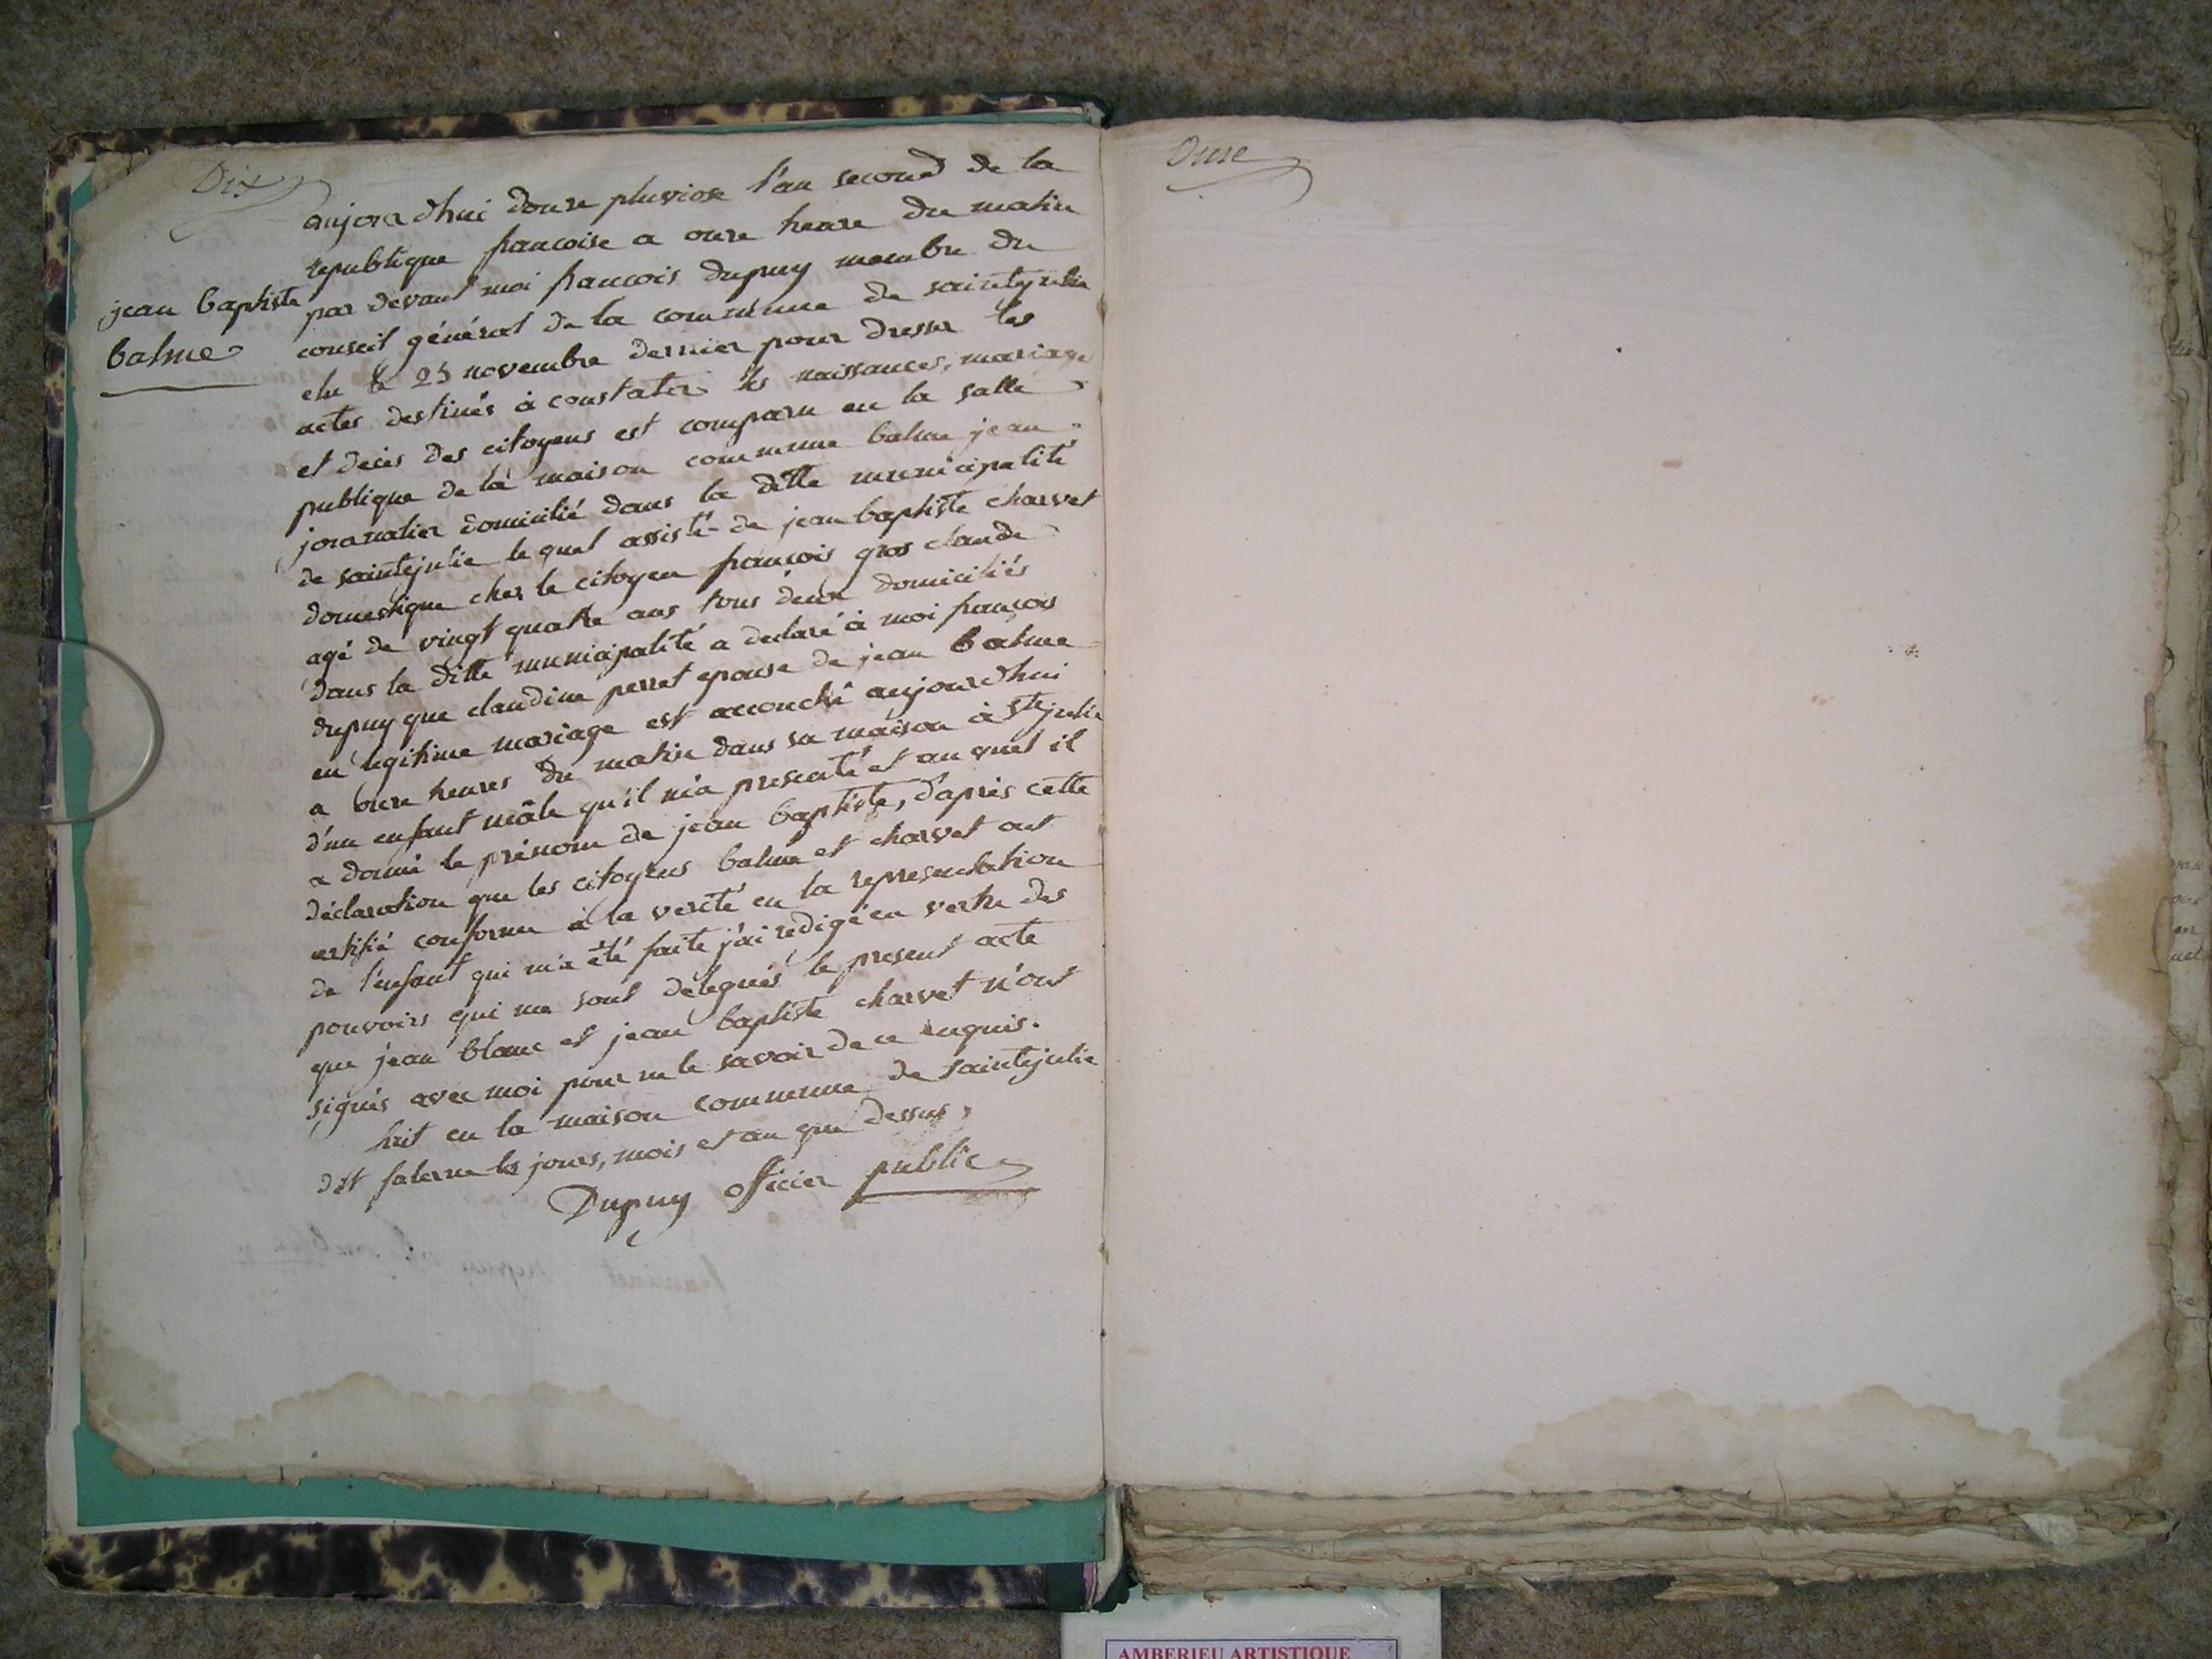 Dix
jean baptiste
balme
aujourdhui douze pluviose l'an second de la
republique francoise a onze heure du matin
par devant moi francois dupuy membre du
conseil général de la commune de saintejulie
elu le 25 novembre dernier pour dresser les
actes destinés à constater les naissances, mariage
et décès des citoyens est comparu en la salle
publique de la maison commune balme jean
jornalier domicilié dans la ditte municipalité
de saintejulie lequel assisté de jean baptiste charvet
domestique chez le citoyen françois gros claude
agé de vingt quatre ans tous deux domiciliés
dans la ditte municipalité a declaré à moi françois
dupuy que claudine perret epouse de jean balme
en legitime mariage est accouché aujourdhui
a onze heures du matin dans sa maison à Ste julie
d'un enfant mâle qu'il m'a presenté et au quel il
a donné le prénom de jean baptiste, d'après cette
déclaration que les citoyens balme et charvet ont
certifié conforme à la verité en la representation
de l'enfant qui m'a été faite j'ai redigé en vertu des
pouvoirs qui me sont délegués le present acte
que jean blanc et jean baptiste charvet n'ont
signés avec moi pour ne le savoir de ce enquis.
fait en la maison commune de saintejulie
les jours, mois et an que dessus
Dupuy officier public
Onze
AMBERIEU ARTISTIQUE